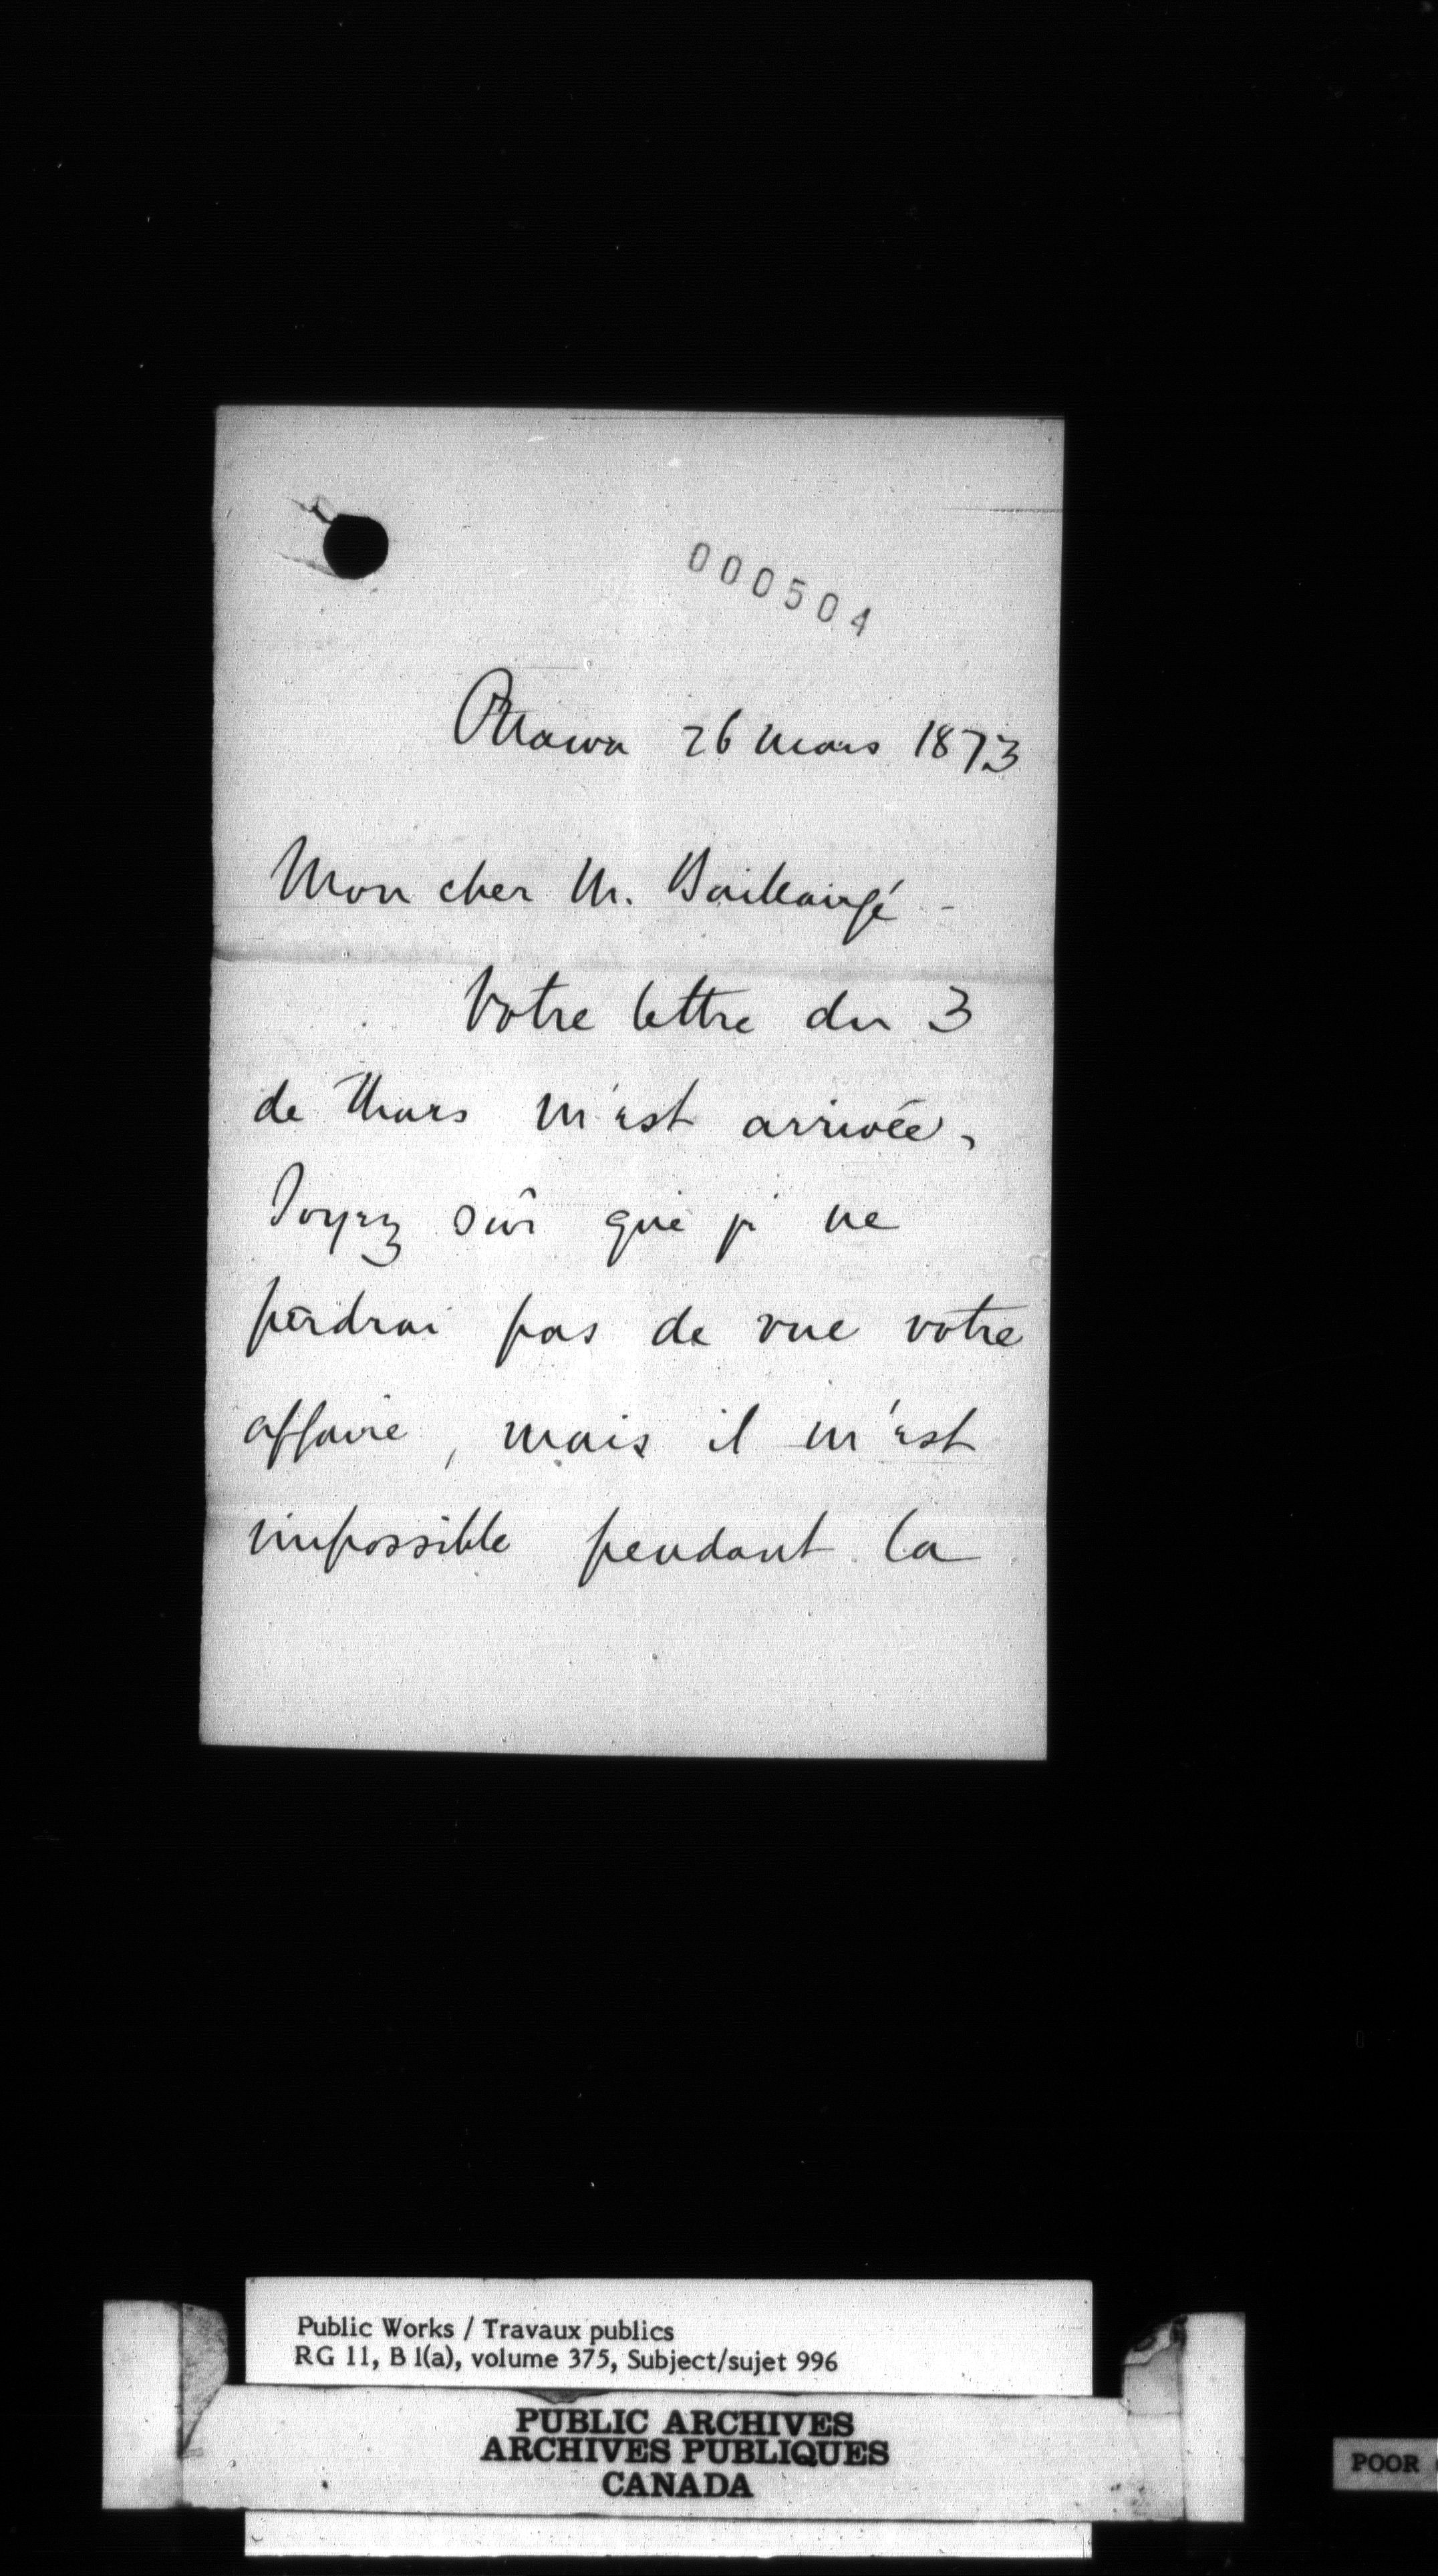 000504
Ottawa 26 Mars 1873
Mon cher M. Baillairgé -
Votre lettre du 3
de Mars m'est arrivée,
Soyez sûr que je ne
perdrai pas de vue votre
affaire, mais il m'est
impossible pendant la
Public Works / Travaux publics
RG 11, B 1(a), volume 375, Subject/sujet 996
PUBLIC ARCHIVES
ARCHIVES PUBLIQUES
CANADA
POOR